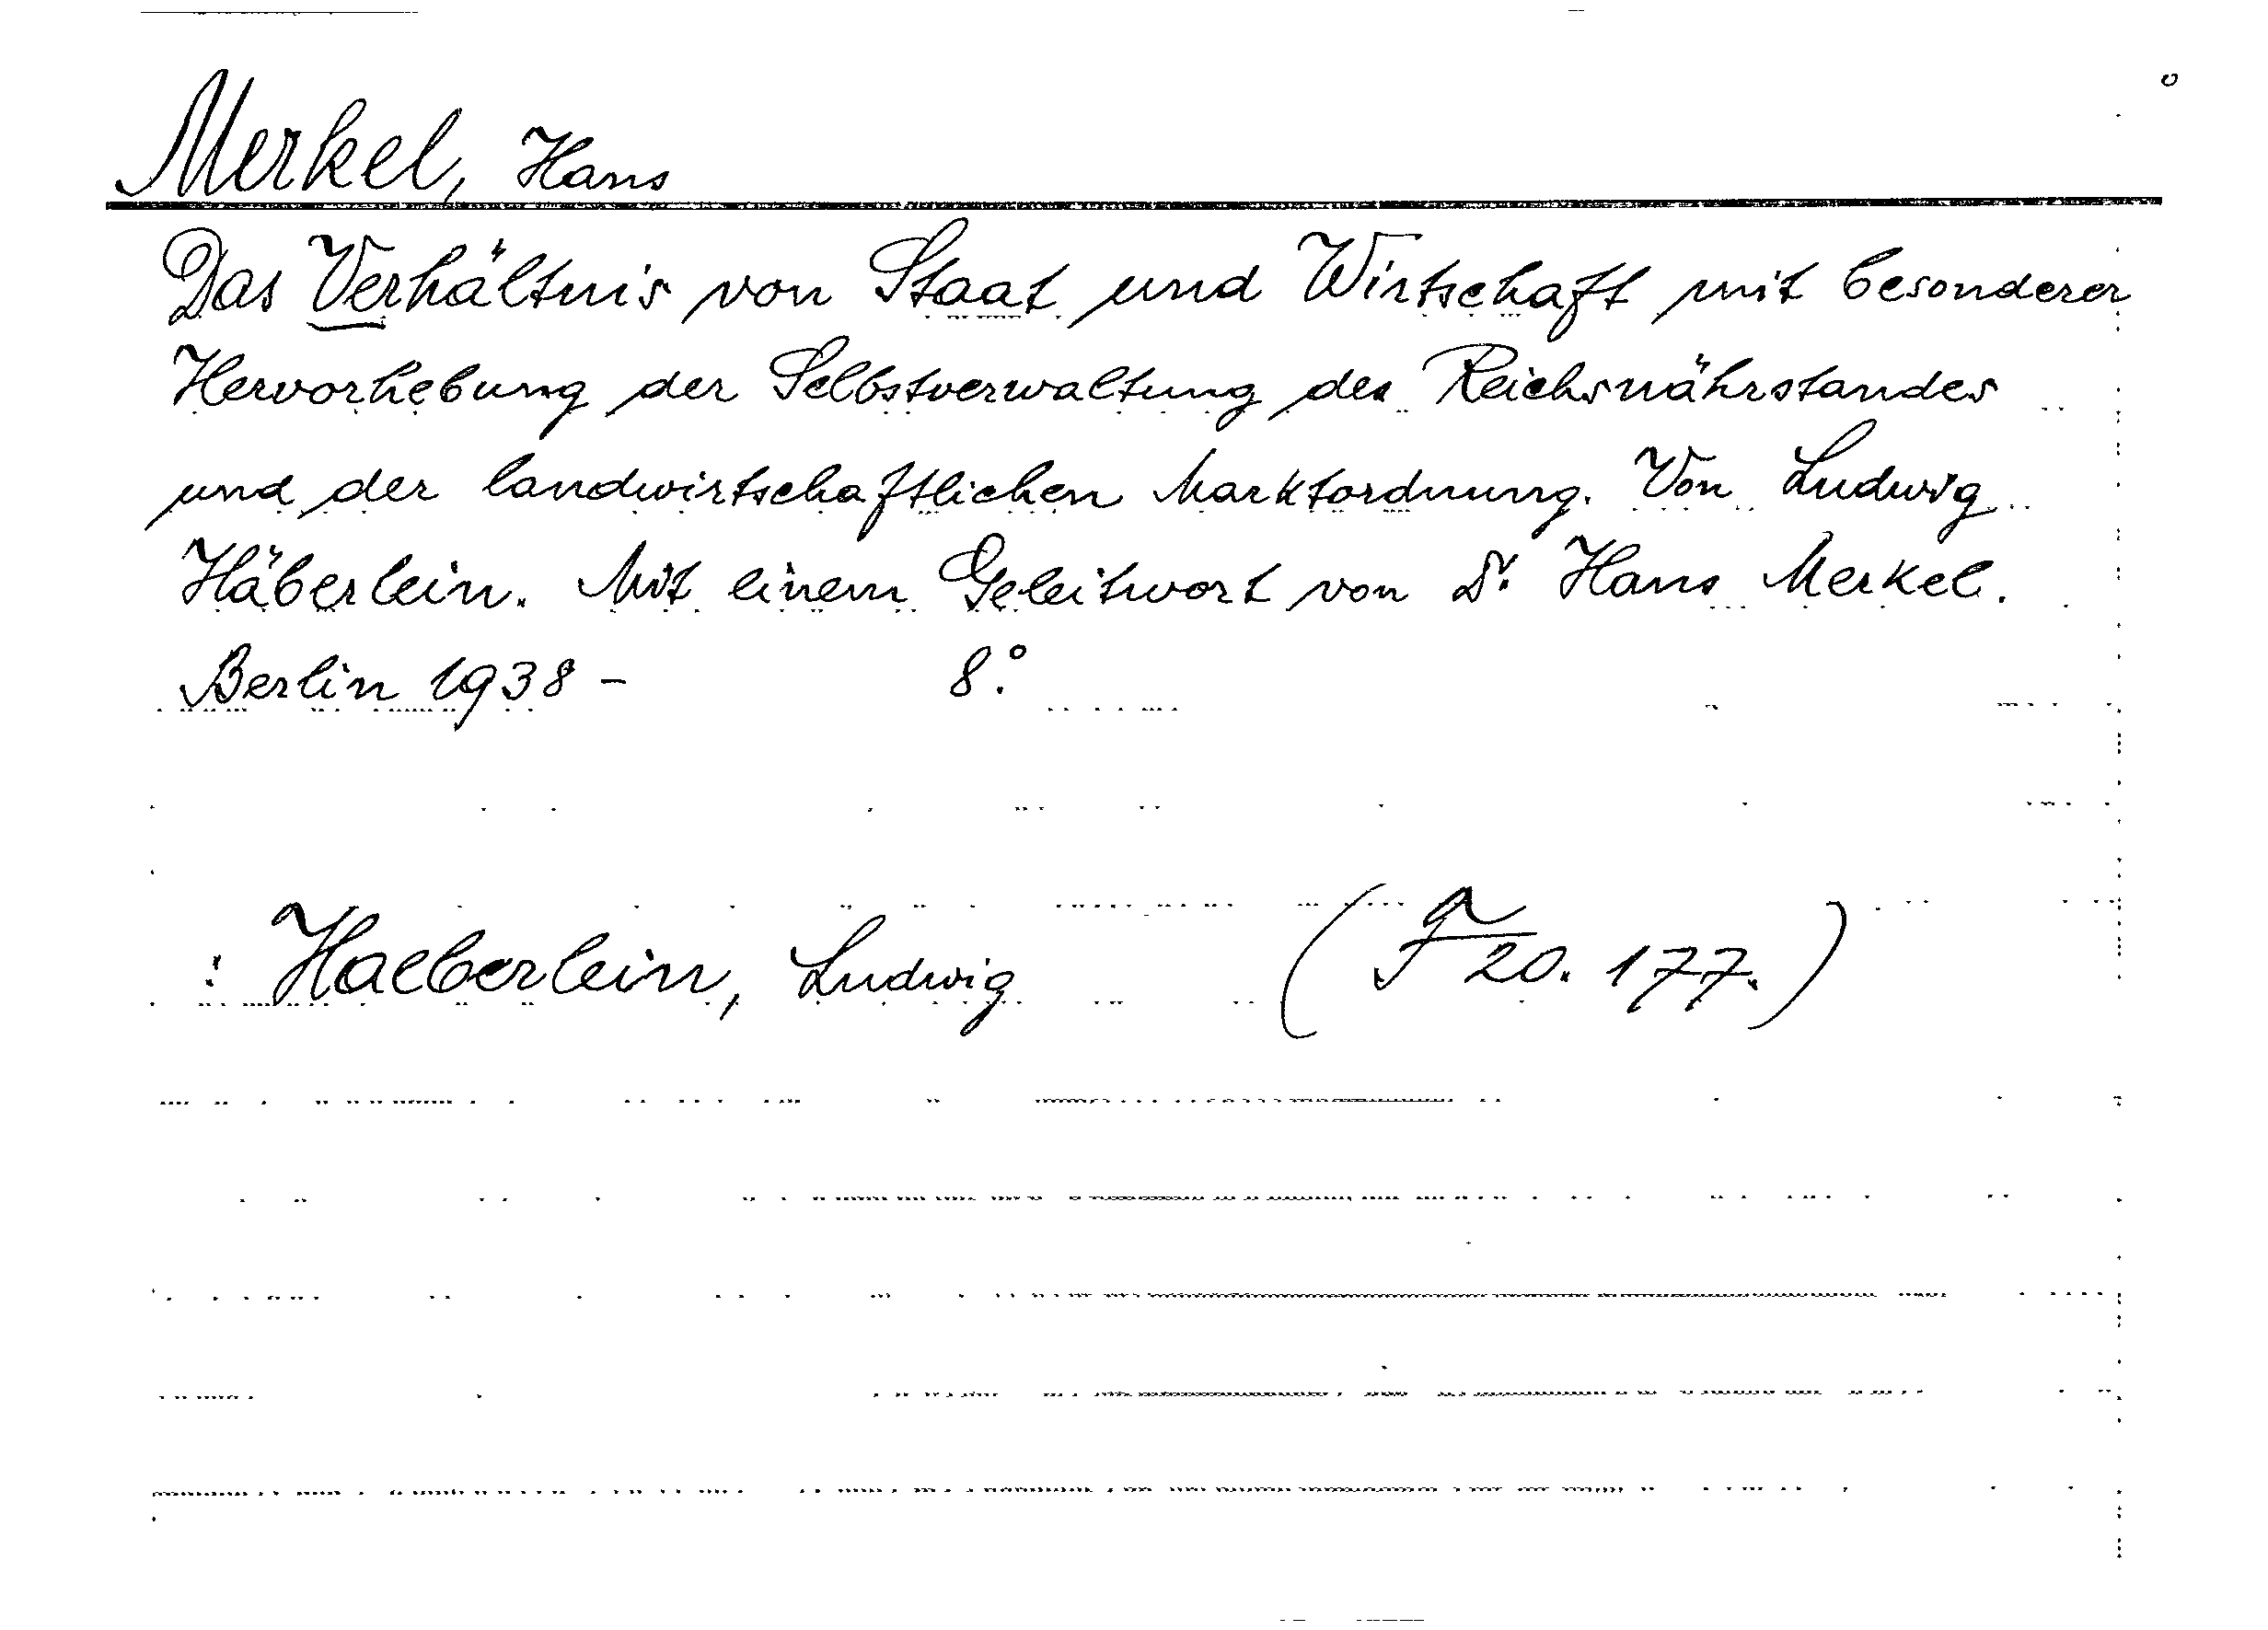 Merkel, Hans
Das Verhältnis von Staat und Wirtschaft mit besonderer
Hervorhebung der Selbstverwaltung des Reichsnährstandes
und der landwirtschaftlichen Marktordnung. Von Ludwig
Häberlein. Mit einem Geleitwort von Dr. Hans Merkel.
Berlin 1938 - 8°.
: Haeberlein, Ludwig (F 20. 177.)